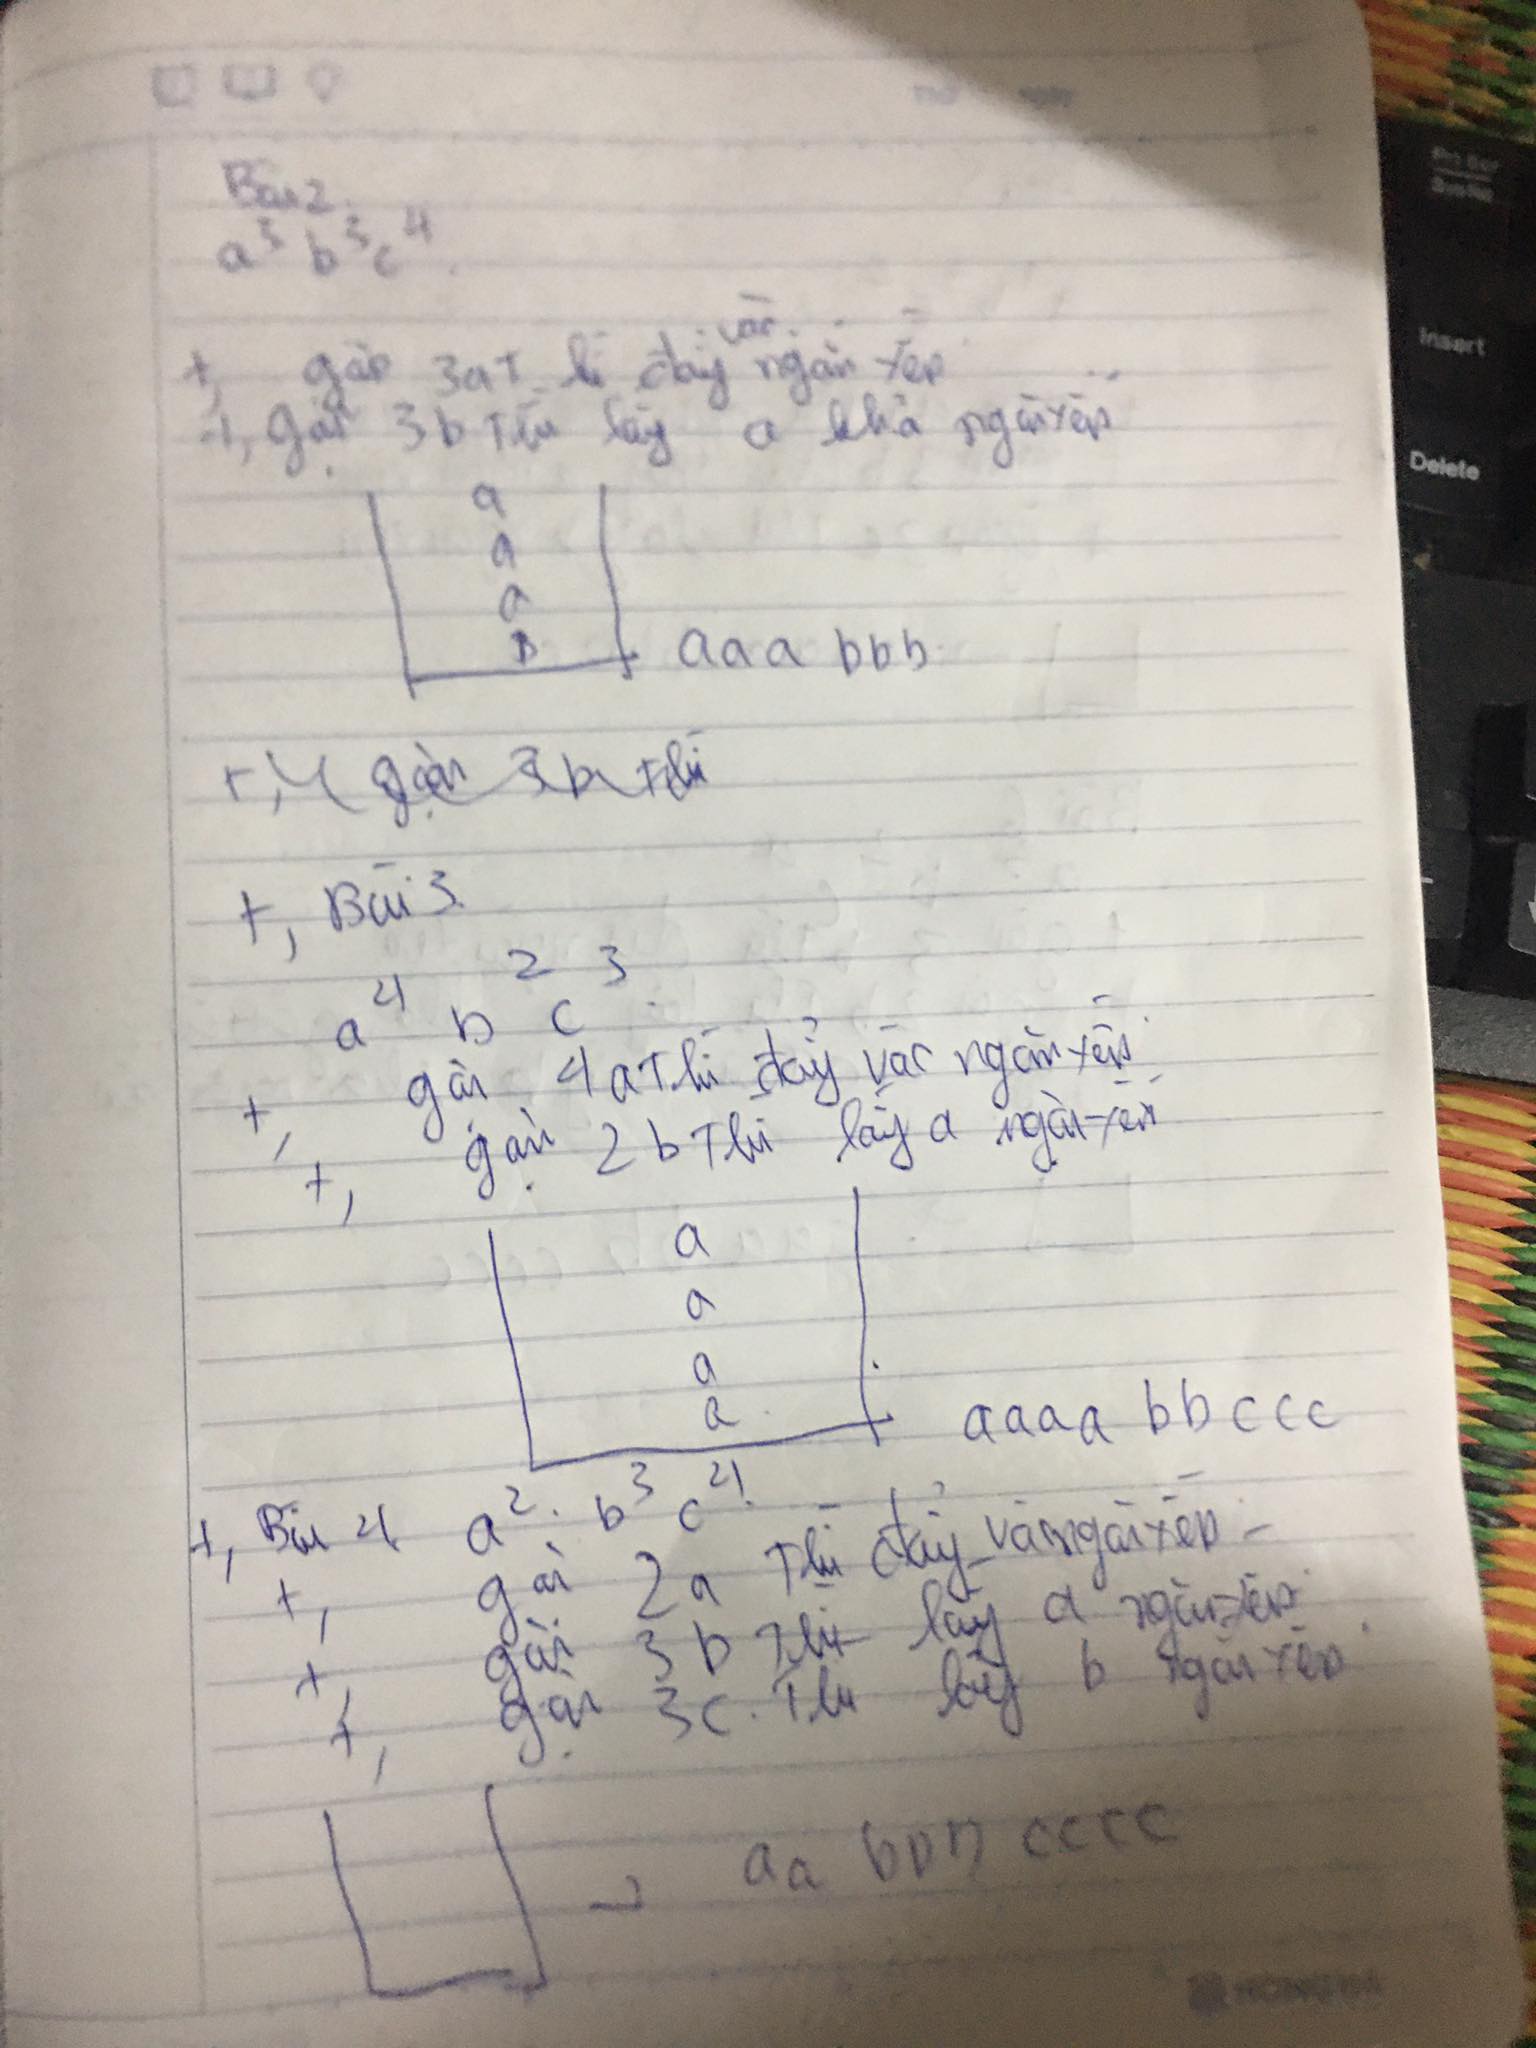 Bài 2.
a³ b³ c⁴.
+, gặp 3a thì đẩy vào ngăn xếp
+, gặp 3b thì lấy a khỏi ngăn xếp
a
a
a
B
aaa bbb
+, gặp 3b thì
+, Bài 3.
a⁴ b² c³.
+, gặp 4a thì đẩy vào ngăn xếp
+, gặp 2b thì lấy a ngăn xếp
a
a
a
a
aaaa bb ccc
+, Bài 4 a². b³ c⁴.
+, gặp 2a thì đẩy vào ngăn xếp
+, gặp 3b thì lấy a ngăn xếp
+, gặp 3c thì lấy b ngăn xếp
aa bbb cccc
Insert
Delete